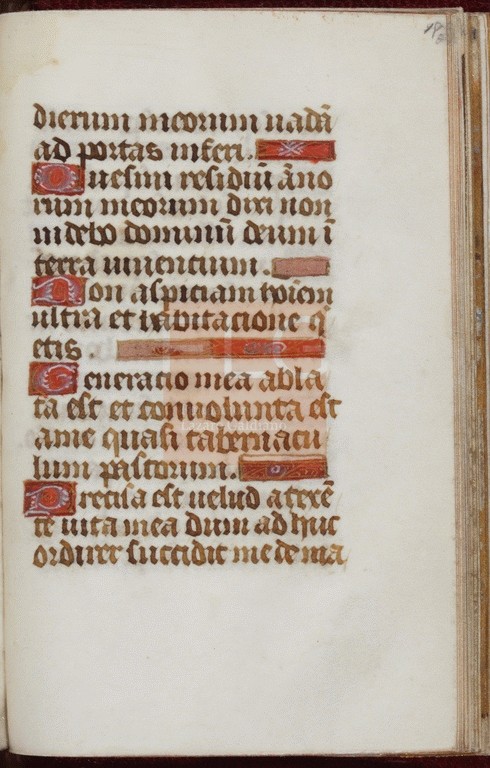 dierum meorum uadā
ad portas inferi.
Quesiui residiū āno
rum meorum dixi non
uidebo dominū deum ī
terra uiuentium.
Non aspiciam hoīem
ultra et habitacione q̄
etis.
Generacio mea abla
ta est et conuolunta est
ame quasi tabernacu
lum pastorum.
Precisa est uelud a texē
te uita mea dum ad huc
ordirer succidit me de ma
Lázaro Galdiano